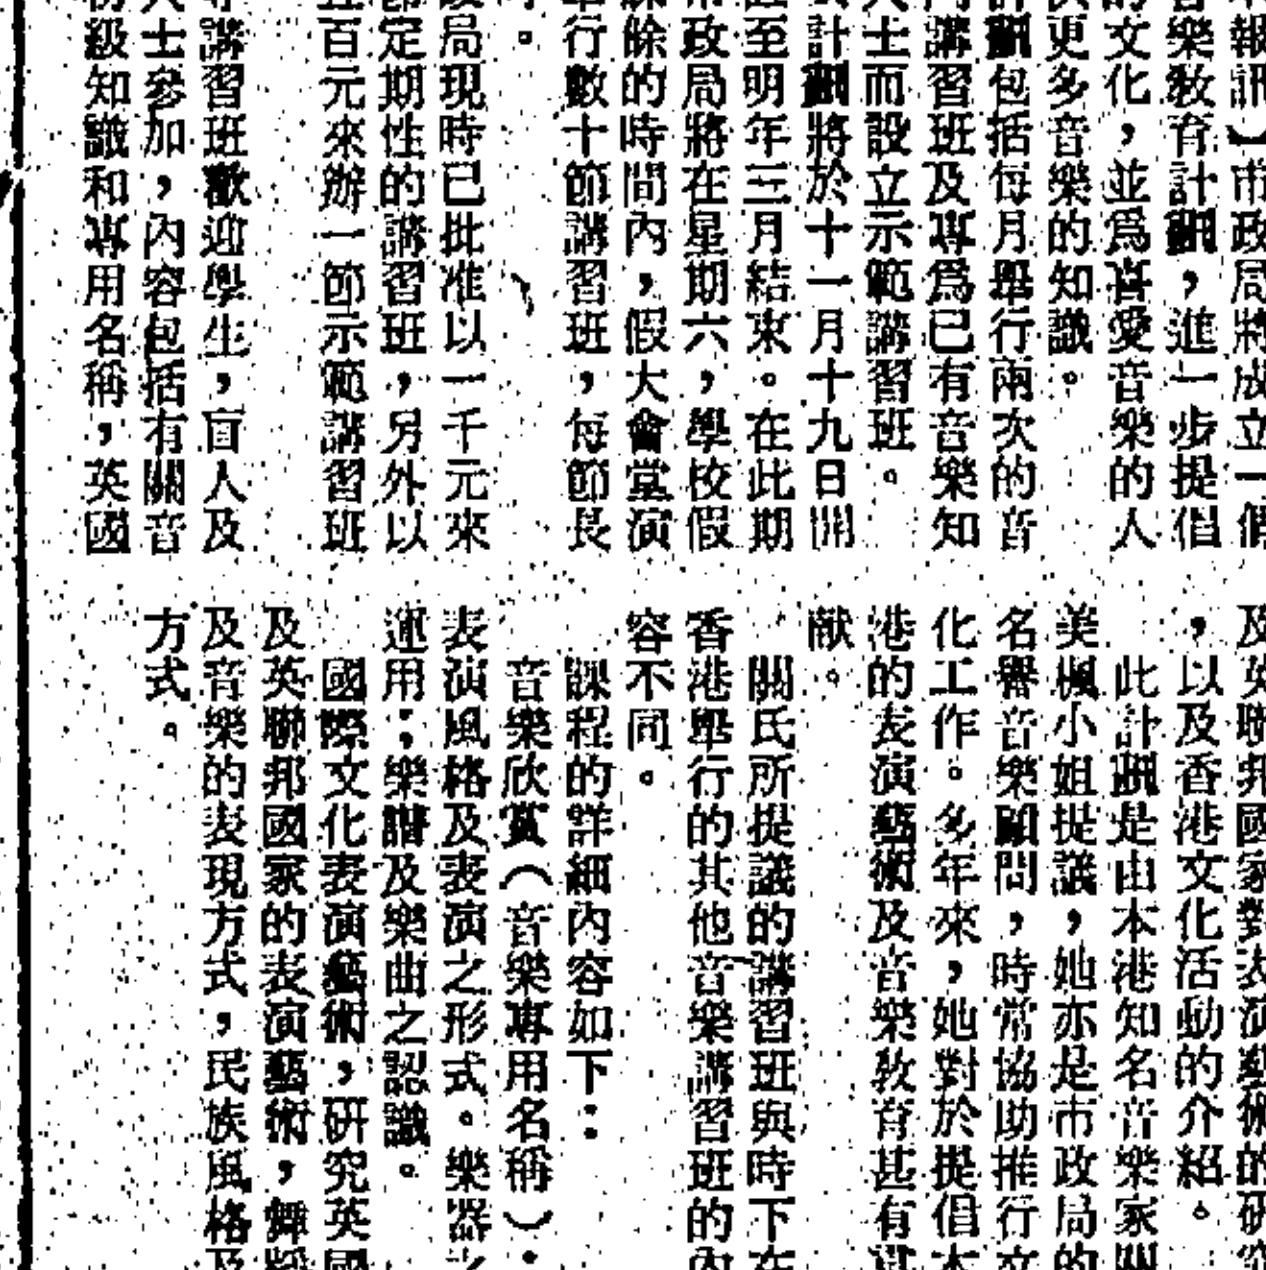 報訊）市政局將成立一個
音樂教育計劃，進一步提倡
文化，並爲喜愛音樂的人
更多音樂的知識。
劃包括每月舉行兩次的音
講習班及專爲已有音樂知
士而設立示範講習班。
計劃將於十一月十九日開
至明年三月結束。在此期
政局將在星期六，學校假
餘的時間內，假大會堂演
行數十節講習班，每節長
。
局現時已批准以一千元來
定期性的講習班，另外以
百元來辦一節示範講習班
講習班歡迎學生，盲人及
士參加，內容包括有關音
級知識和專用名稱，英國
及英聯邦國家對表演藝術的研
，以及香港文化活動的介紹。
此計劃是由本港知名音樂家關
美楓小姐提議，她亦是市政局的
名譽音樂顧問，時常協助推行文
化工作。多年來，她對於提倡本
港的表演藝術及音樂教育甚有
献。
關氏所提議的講習班與時下在
香港舉行的其他音樂講習班的內
容不同。
課程的詳細內容如下：
音樂欣賞（音樂專用名稱）：
表演風格及表演之形式。樂器之
運用；樂譜及樂曲之認識。
國際文化表演藝術，研究英國
及英聯邦國家的表演藝術，舞蹈
及音樂的表現方式，民族風格及
方式。